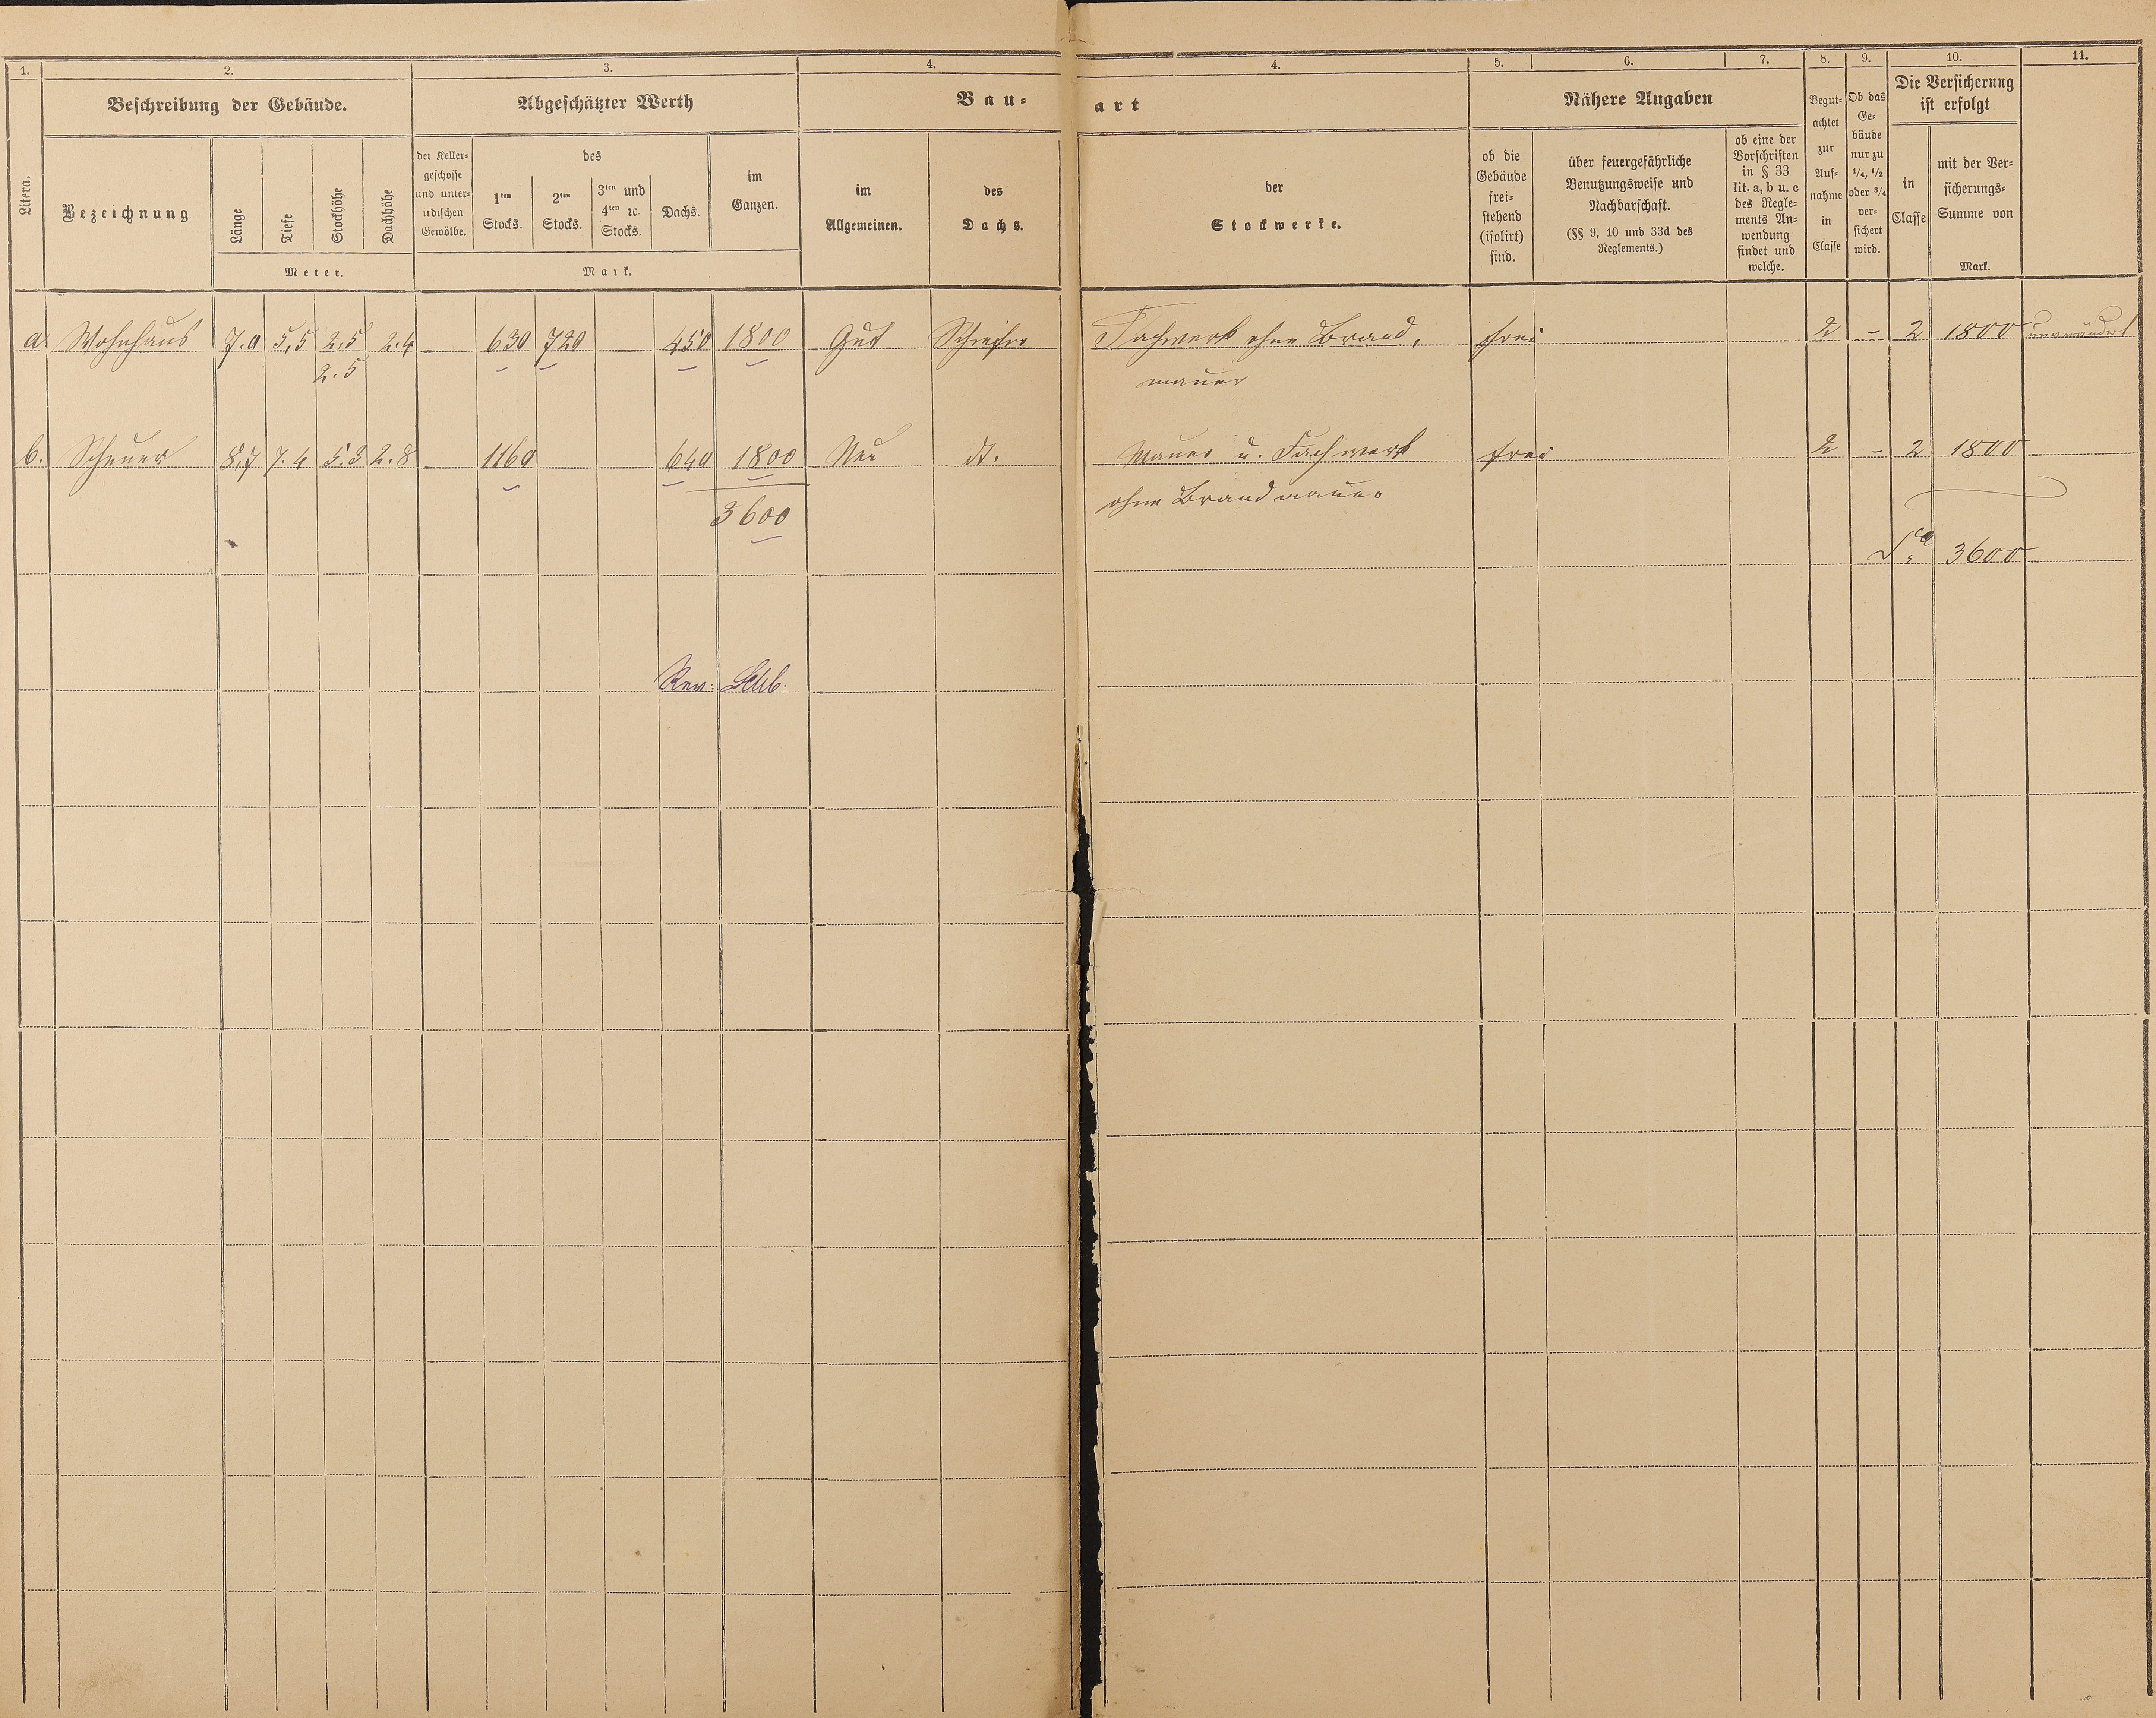 1. 2. 3. 4. 4. 5. 6. 7. 8. 9. 10. 11.
Litera.
Beschreibung der Gebäude.
Bezeichnung
Länge
Tiefe
Stockhöhe
Dachhöhe
Meter.
Abgeschätzter Werth
der Keller-
geschosse
und unter-
irdischen
Gewölbe.
des
1ten
Stocks.
2ten
Stocks.
3ten und
4ten ꝛc.
Stocks.
Dachs.
im
Ganzen.
Mark.
Bau-
art
im
Allgemeinen.
des
Dachs.
der
Stockwerke.
Nähere Angaben
ob die
Gebäude
frei-
stehend
(isolirt)
sind.
über feuergefährliche
Benutzungsweise und
Nachbarschaft.
(§§ 9, 10 und 33d des
Reglements.)
ob eine der
Vorschriften
in § 33
lit. a, b u. c
des Regle-
ments An-
wendung
findet und
welche.
Begut-
achtet
zur
Auf-
nahme
in
Classe
Ob das
Ge-
bäude
nur zu
1/4, 1/2
oder 3/4
ver-
sichert
wird.
Die Versicherung
ist erfolgt
in
Classe
mit der Ver-
sicherungs-
Summe von
Mark.
a. Wohnhaus 7.0 5,5 2,5 2.4 630 720 450 1800 Gut Schiefer Fachwerk ohne Brand, frei 2 - 2 1800 unverändert
2.5 mauer
b. Scheuer 8,7 7.4 5.3 2.8 1160 640 1800 Neu dt. Mauer u. Fachwerk frei 2 - 2 1800
3600 ohne Brandmauer
Sa. 3600
Rev.